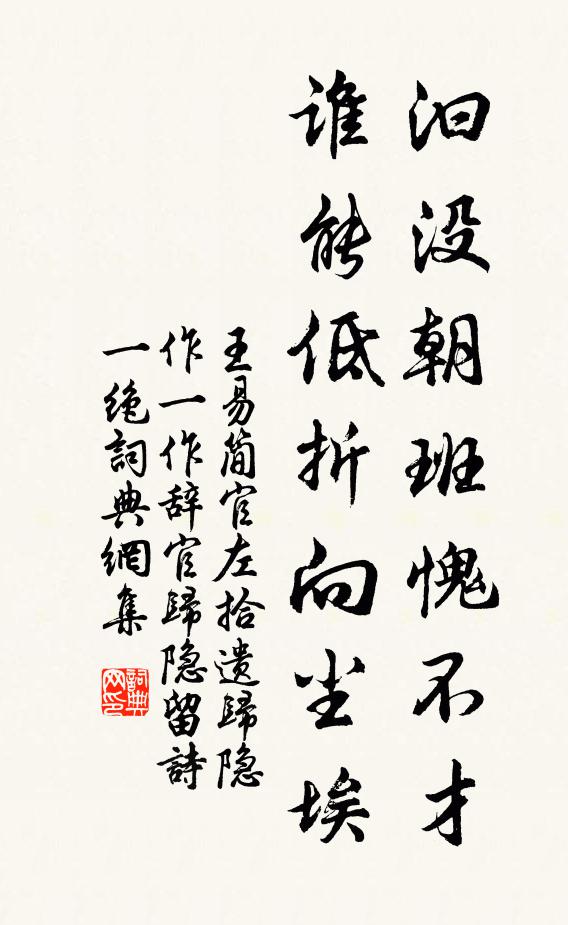 汩没朝班愧不才
谁能低折向尘埃
王易简官左拾遗歸隐
作一作辞官歸隐留詩
一绝詞典網集
詞典网印